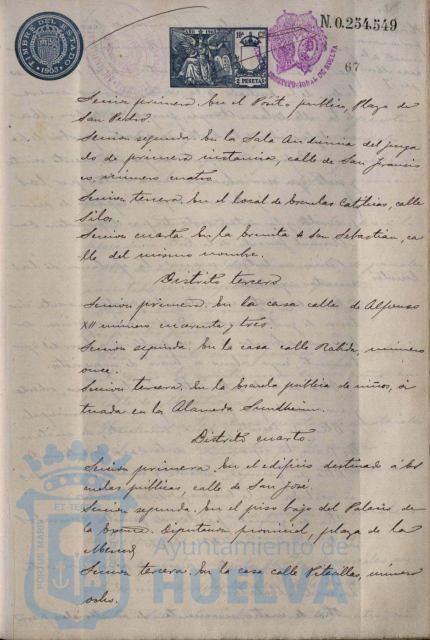 TIMBRE DEL ESTADO
1903
2 PESETAS
N.0.254.549
HUELVA
67
Sección primera. En el Pósito público, Plaza de
San Pedro.
Sección segunda. En la Sala Audiencia del juzga
do de primera instancia, calle de San Francis
co, número cuatro.
Sección tercera. En el local de Escuelas Católicas, calle
Silos.
Sección cuarta. En la Ermita de San Sebastian, ca
lle del mismo nombre.
Distrito tercero
Sección primera. En la casa calle de Alfonso
XII número cuarenta y tres.
Sección segunda. En la casa calle Rábida, número
once.
Sección tercera. En la Escuela pública de niños, si
tuada en la Alameda Sundheim.
Distrito cuarto.
Sección primera. En el edificio destinado á Es
cuelas públicas, calle de San José.
Sección segunda. En el piso bajo del Palacio de
la Excma. Diputación provincial, plaza de la
Merced
Sección tercera. En la casa calle número
ocho.
PORTUS MARIS
ET TE
Ayuntamiento de
HUELVA